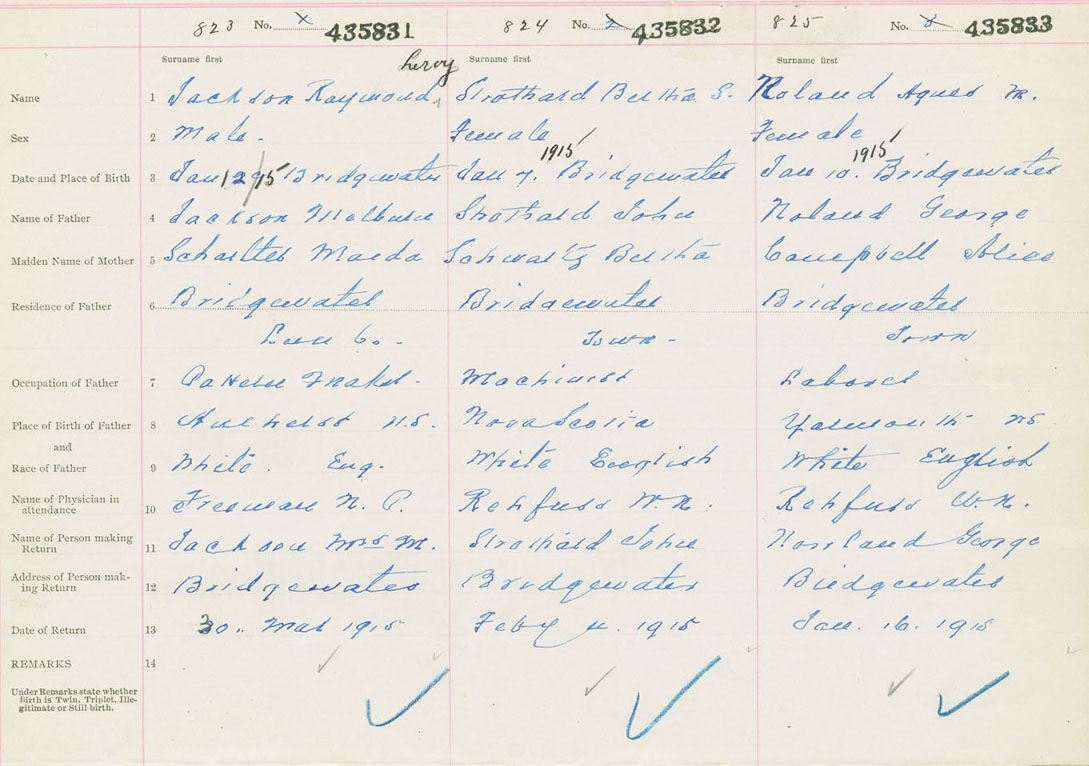 823 No. x 435831 824 No. 2 435832 825 No. 3 435833
Surname first Leroy Surname first Surname first
Name 1 Jackson Raymond, Strothard Bertha S. Noland Agnes M.
Sex 2 Male. Female Female
1915 1915
Date and Place of Birth 3 Jan 12 9/15 Bridgewater Jan 7. Bridgewater Jan 10. Bridgewater
Name of Father 4 Jackson Melburne Strothard John Noland George
Maiden Name of Mother 5 Maeda Schwartz Bertha Campbell Alice
Residence of Father 6 Bridgewater Bridgewater Bridgewater
Lun Co. - Town - Town
Occupation of Father 7 Pattern Maker. Machinist Laborer
Place of Birth of Father 8 Amherst N.S. Nova Scotia Yarmouth NS
and
Race of Father 9 White. Eng. White English White English
Name of Physician in
attendance 10 Freeman N. P. Rehfuss W. N. Rehfuss W. N.
Name of Person making
Return 11 Jackson Mrs M. Strothard John George
Address of Person mak-
ing Return 12 Bridgewater Bridgewater Bridgewater
Date of Return 13 30. Mar 1915 Feby 4. 1915 Jan. 16. 1915
REMARKS 14
Under Remarks state whether
Birth is Twin, Triplet, Ille-
gitimate or Still-birth.